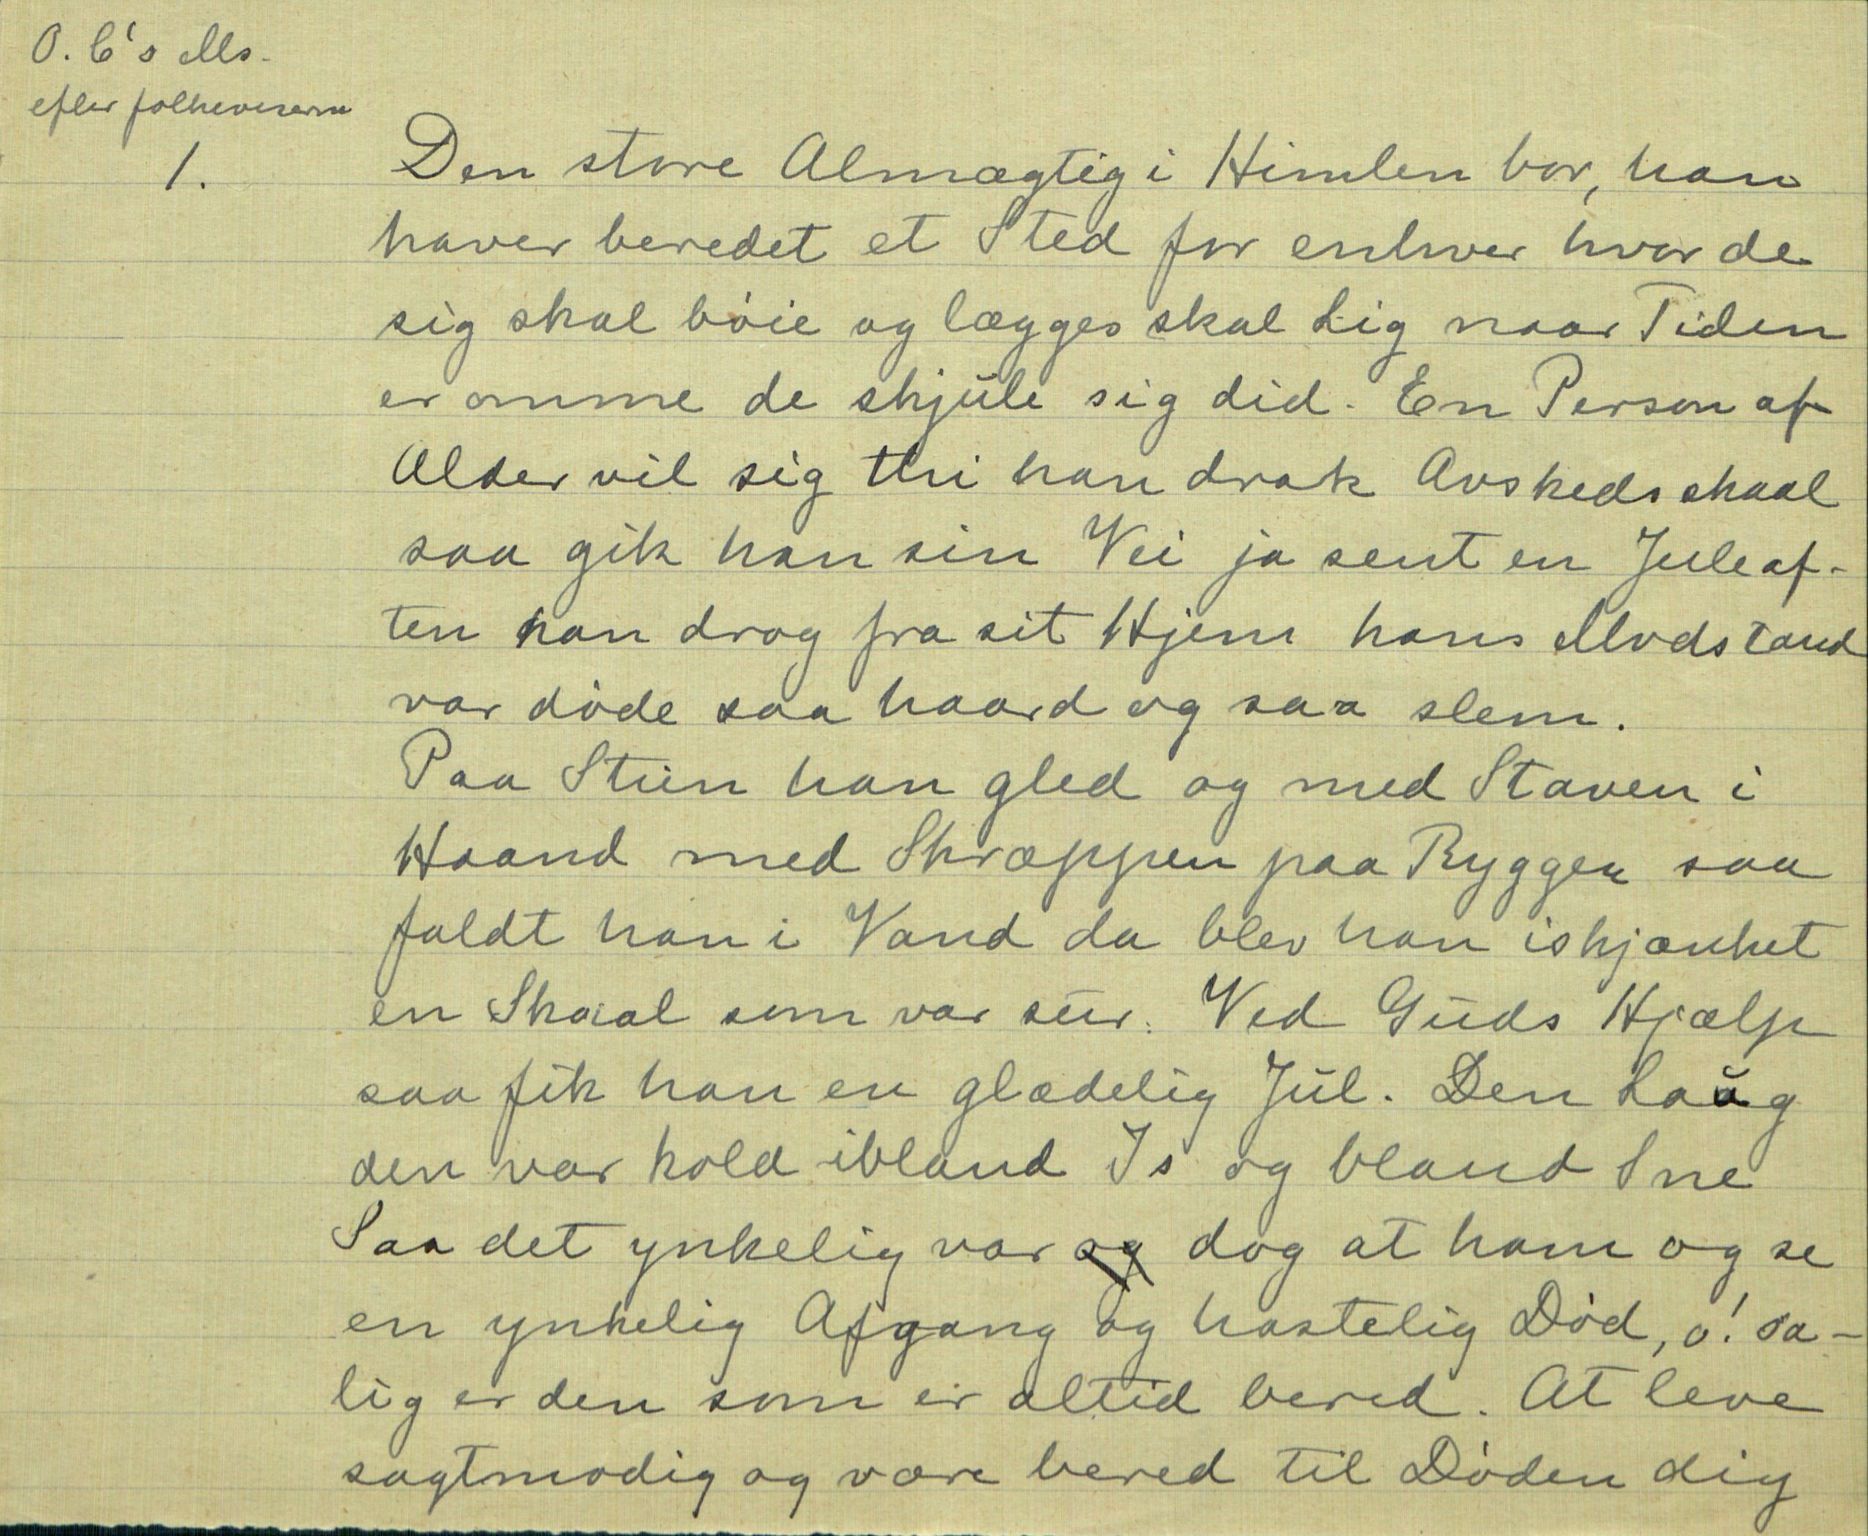 O. C's Ms.
efter folkeviserne
1. Den store Almægtig i Himlen bor, han
haver beredet et Sted for enhver hvor de
sig skal bøie og lægges skal Lig naar Tiden
er omme de skjule sig did. En Person af
Alder vil sig thi han drak Avskedsskaal
saa gik han sin Vei ja sent en Juleaf-
ten han drog fra sit Hjem hans Modstand
var døde saa haard og saa slem.
Paa Stien han gled og med Staven i
Haand med Skræppen paa Ryggen saa
faldt han i Vand da blev han iskjænket
en Skaal som var sur. Ved Guds Hjælp
saa fik han en glædelig Jul. Den Laug
den var kold ibland Is og bland Sne
Saa det ynkelig var og dog at ham og se
en ynkelig Afgang og hastelig Død, o! sa-
lig er den som er altid bered. At leve
sagtmodig og være bered til Døden dig